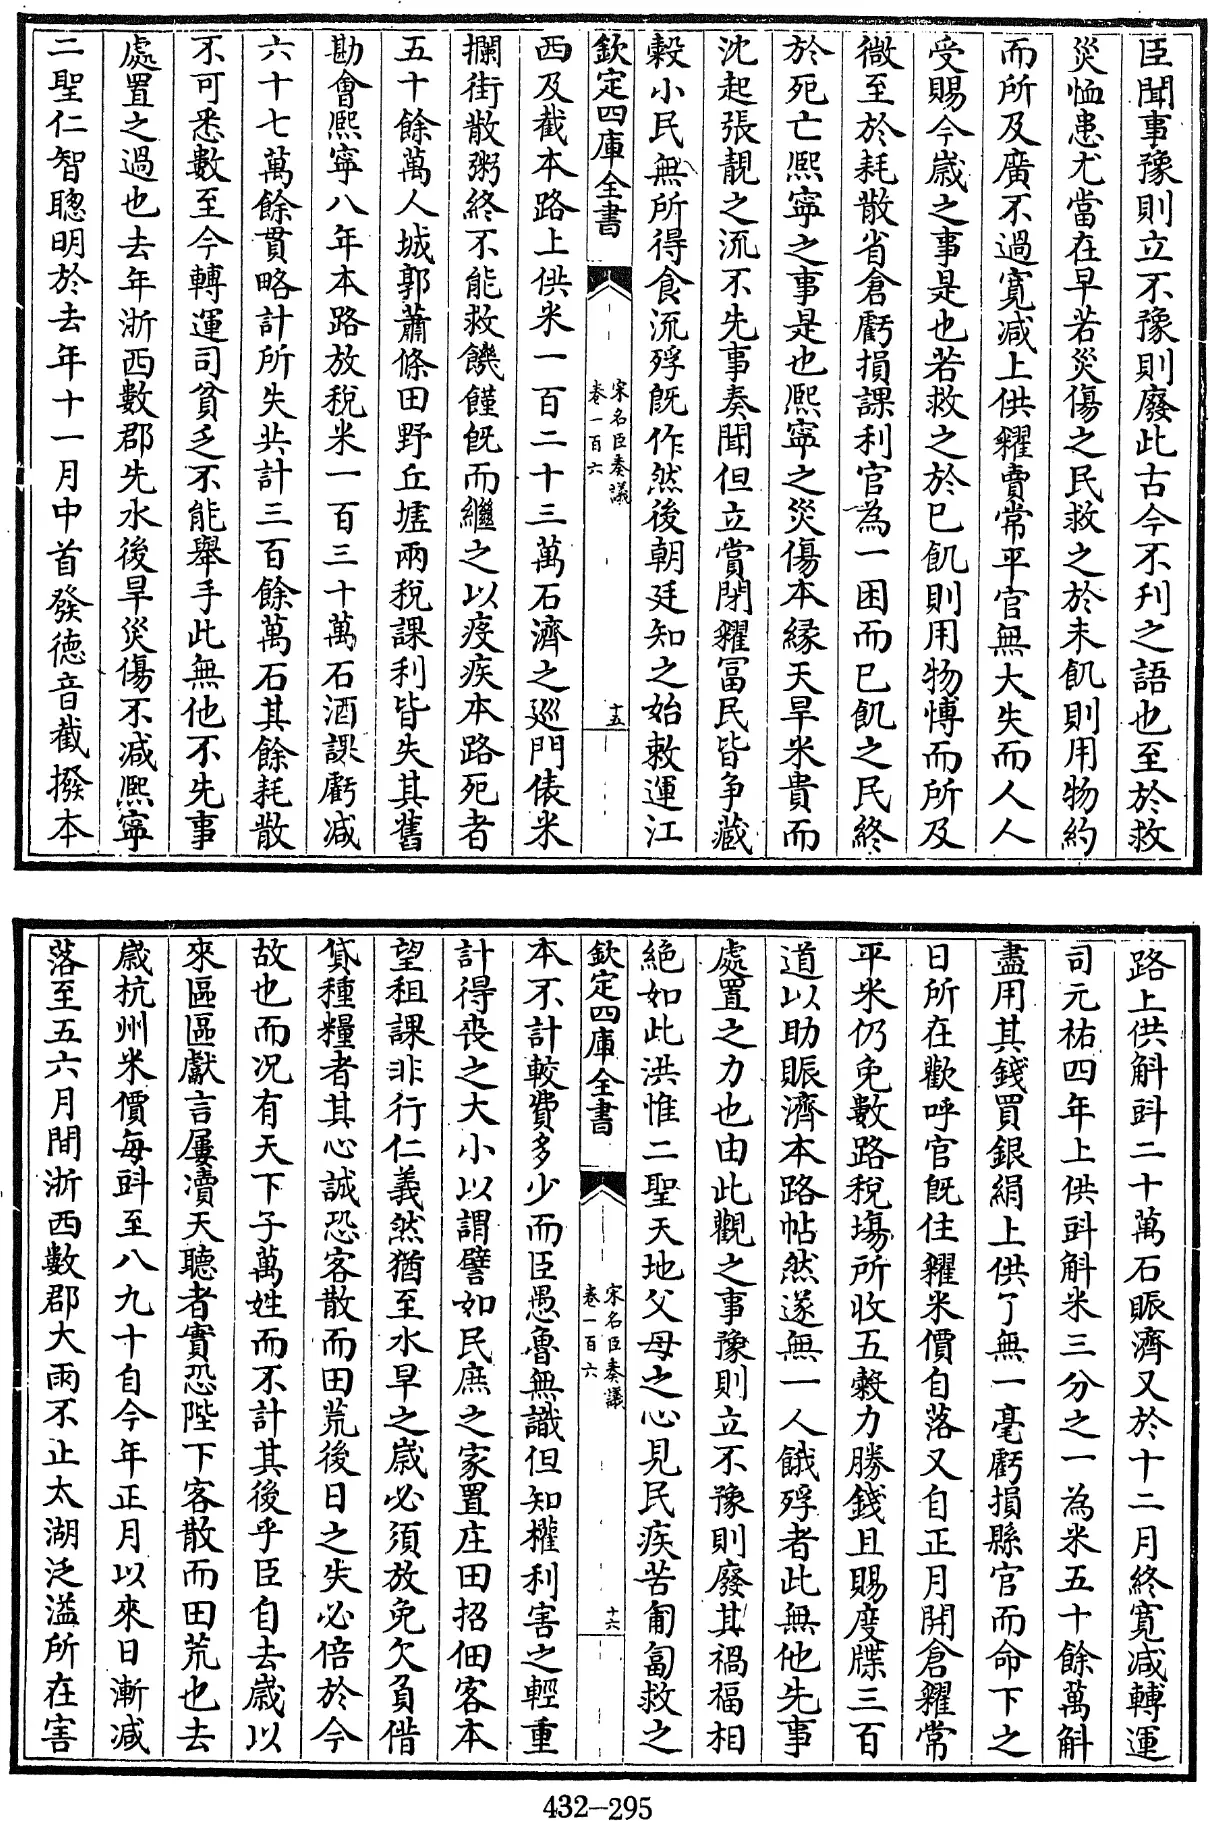 臣聞事豫則立不豫則廢此古今不刋之語也至於救
災恤患尤當在早若災傷之民救之於未飢則用物約
而所及廣不過寛減上供糶賣常平官無大失而人人
受賜今嵗之事是也若救之於已飢則用物博而所及
微至於耗散省倉虧損課利官為一困而已飢之民終
於死亡熈寧之事是也熈寧之災傷本縁天旱米貴而
沈起張靚之流不先事奏聞但立賞閉糶冨民皆争藏
榖小民無所得食流殍既作然後朝廷知之始敕運江
欽定四庫全書
宋名臣奏議
卷一百六
十五
西及截本路上供米一百二十三萬石濟之廵門俵米
攔街散粥終不能救饑饉既而繼之以疫疾本路死者
五十餘萬人城郭蕭條田野丘墟兩稅課利皆失其舊
勘會熈寧八年本路放稅米一百三十萬石酒課虧減
六十七萬餘貫略計所失共計三百餘萬石其餘耗散
不可悉數至今轉運司貧乏不能舉手此無他不先事
處置之過也去年浙西數郡先水後旱災傷不減熈寧
二聖仁智聰明於去年十一月中首發徳音截撥本
路上供斛㪷二十萬石賑濟又於十二月終寛減轉運
司元祐四年上供㪷斛米三分之一為米五十餘萬斛
盡用其錢買銀絹上供了無一毫虧損縣官而命下之
日所在歡呼官既住糶米價自落又自正月開倉糶常
平米仍免數路稅塲所收五糓力勝錢且賜度牒三百
道以助賑濟本路帖然遂無一人餓殍者此無他先事
處置之力也由此觀之事豫則立不豫則廢其禍福相
絶如此洪惟二聖天地父母之心見民疾苦匍匐救之
欽定四庫全書
宋名臣奏議
卷一百六
十六
本不計較費多少而臣愚魯無識但知權利害之輕重
計得喪之大小以謂譬如民庶之家置庄田招佃客本
望租課非行仁義然猶至水旱之嵗必須放免欠負借
貸種糧者其心誠恐客散而田荒後日之失必倍於今
故也而况有天下子萬姓而不計其後乎臣自去嵗以
來區區獻言屢凟天聽者實恐陛下客散而田荒也去
嵗杭州米價每㪷至八九十自今年正月以來日漸減
落至五六月間浙西數郡大雨不止太湖泛溢所在害
432-295